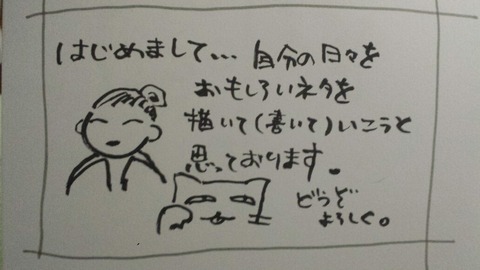 はじめまして... 自分の日々を
おもしろいネタを
描いて(書いて)いこうと
思っております。
どうぞ
よろしく。